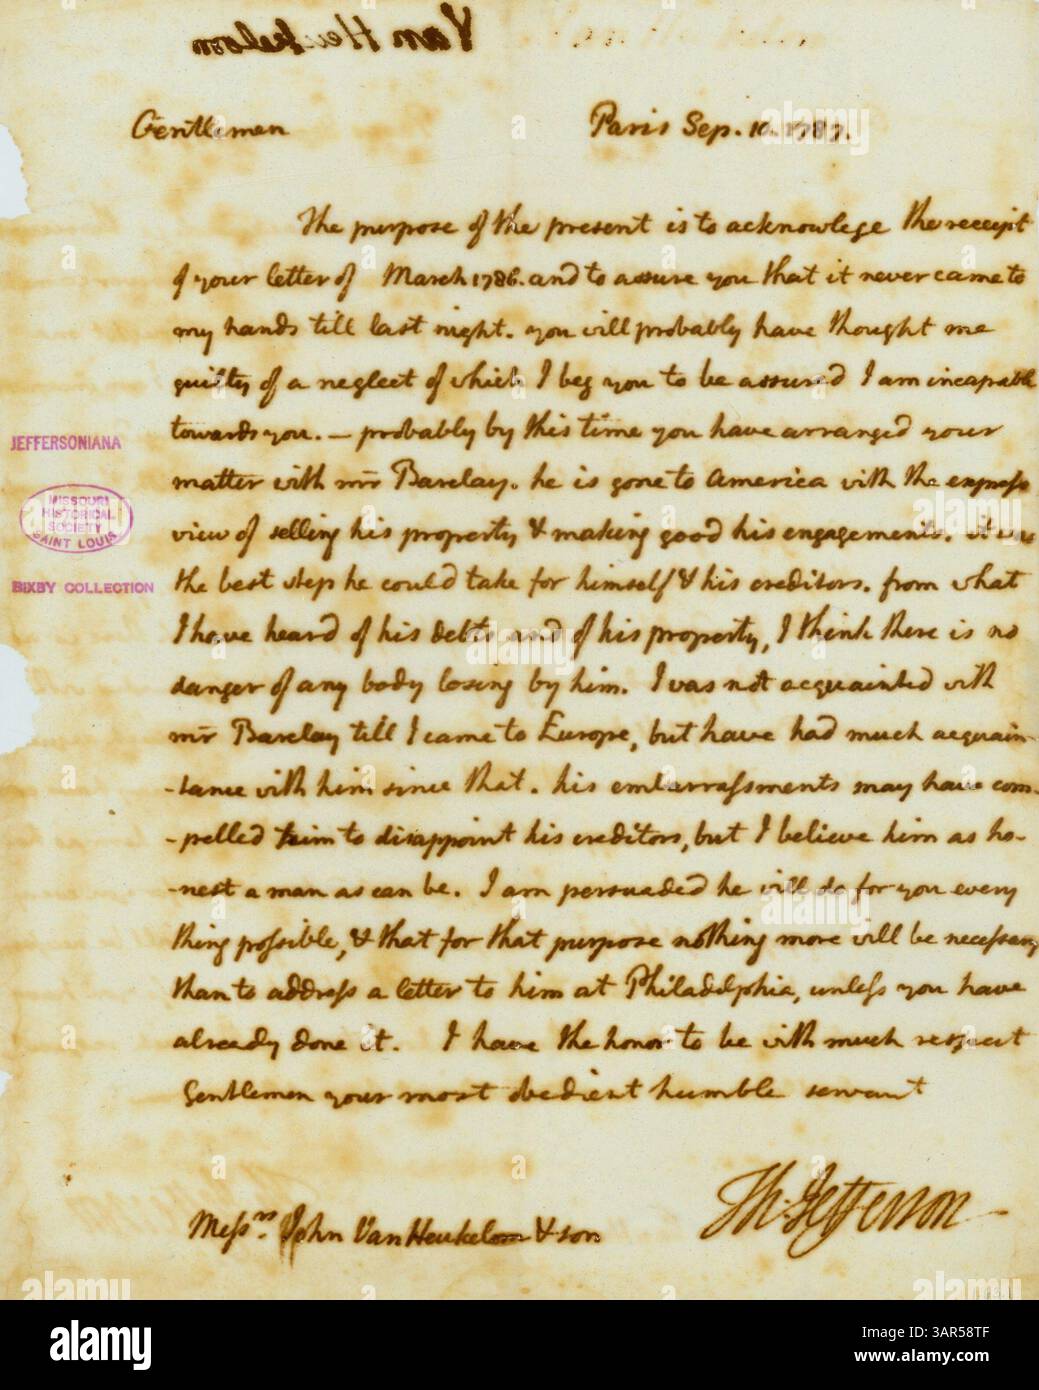 Van Heukelom
Gentlemen Paris Sep. 10. 1787.
The purpose of the present is to acknowlege the receipt
of your letter of March 1786. and to assure you that it never came to
my hands till last night. you will probably have thought me
guilty of a neglect of which I beg you to be assured I am incapable
towards you. — probably by this time you have arranged your
matter with mr Barclay. he is gone to America with the express
view of selling his property & making good his engagements. it was
the best step he could take for himself & his creditors. from what
I have heard of his debts and of his property, I think there is no
danger of any body losing by him. I was not acquainted with
mr Barclay till I came to Europe, but have had much acquain-
-tance with him since that. his embarrassments may have com-
-pelled him to disappoint his creditors, but I believe him as ho-
-nest a man as can be. I am persuaded he will do for you every
thing possible, & that for that purpose nothing more will be necessary
than to address a letter to him at Philadelphia, unless you have
already done it. I have the honor to be with much respect
Gentlemen your most obedient humble servant
Th: Jefferson
Messrs. John Van Heukelom & son
JEFFERSONIANA
MISSOURI
HISTORICAL
SOCIETY
SAINT LOUIS
BIXBY COLLECTION
alamy
Image ID: 3AR58TF
www.alamy.com